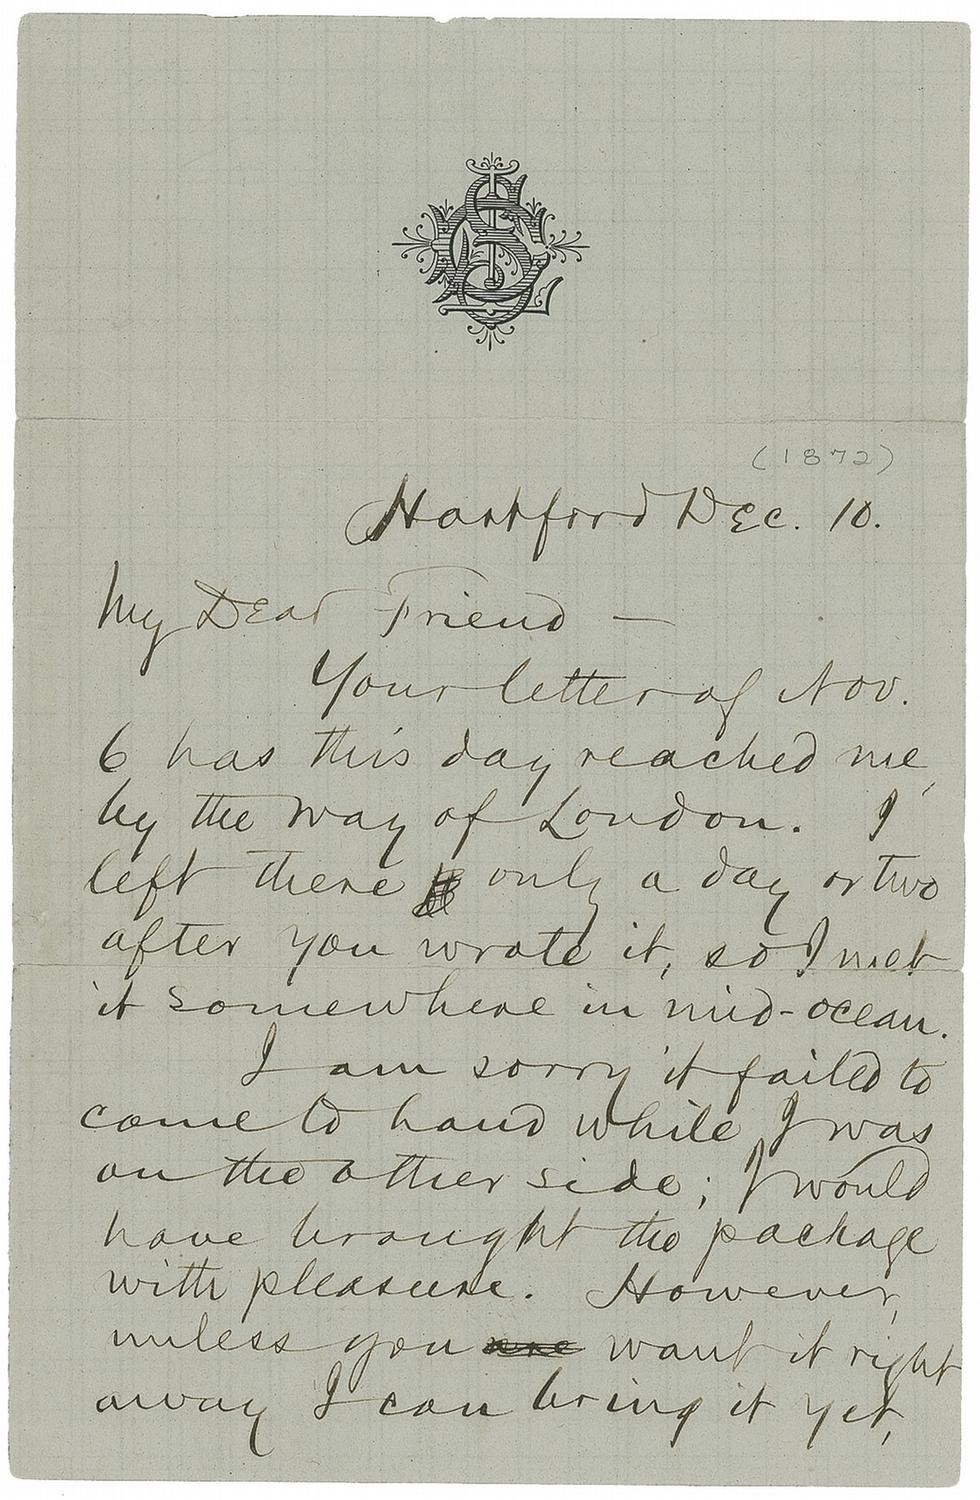 (1872)
Hartford Dec. 10.
My Dear Friend —
Your letter of Nov.
6 has this day reached me,
by the way of London. I
left there only a day or two
after you wrote it, so I met
it somewhere in mid-ocean.
I am sorry it failed to
come to hand while I was
on the other side; I would
have brought the package
with pleasure. However,
unless you are want it right
away I can bring it yet,